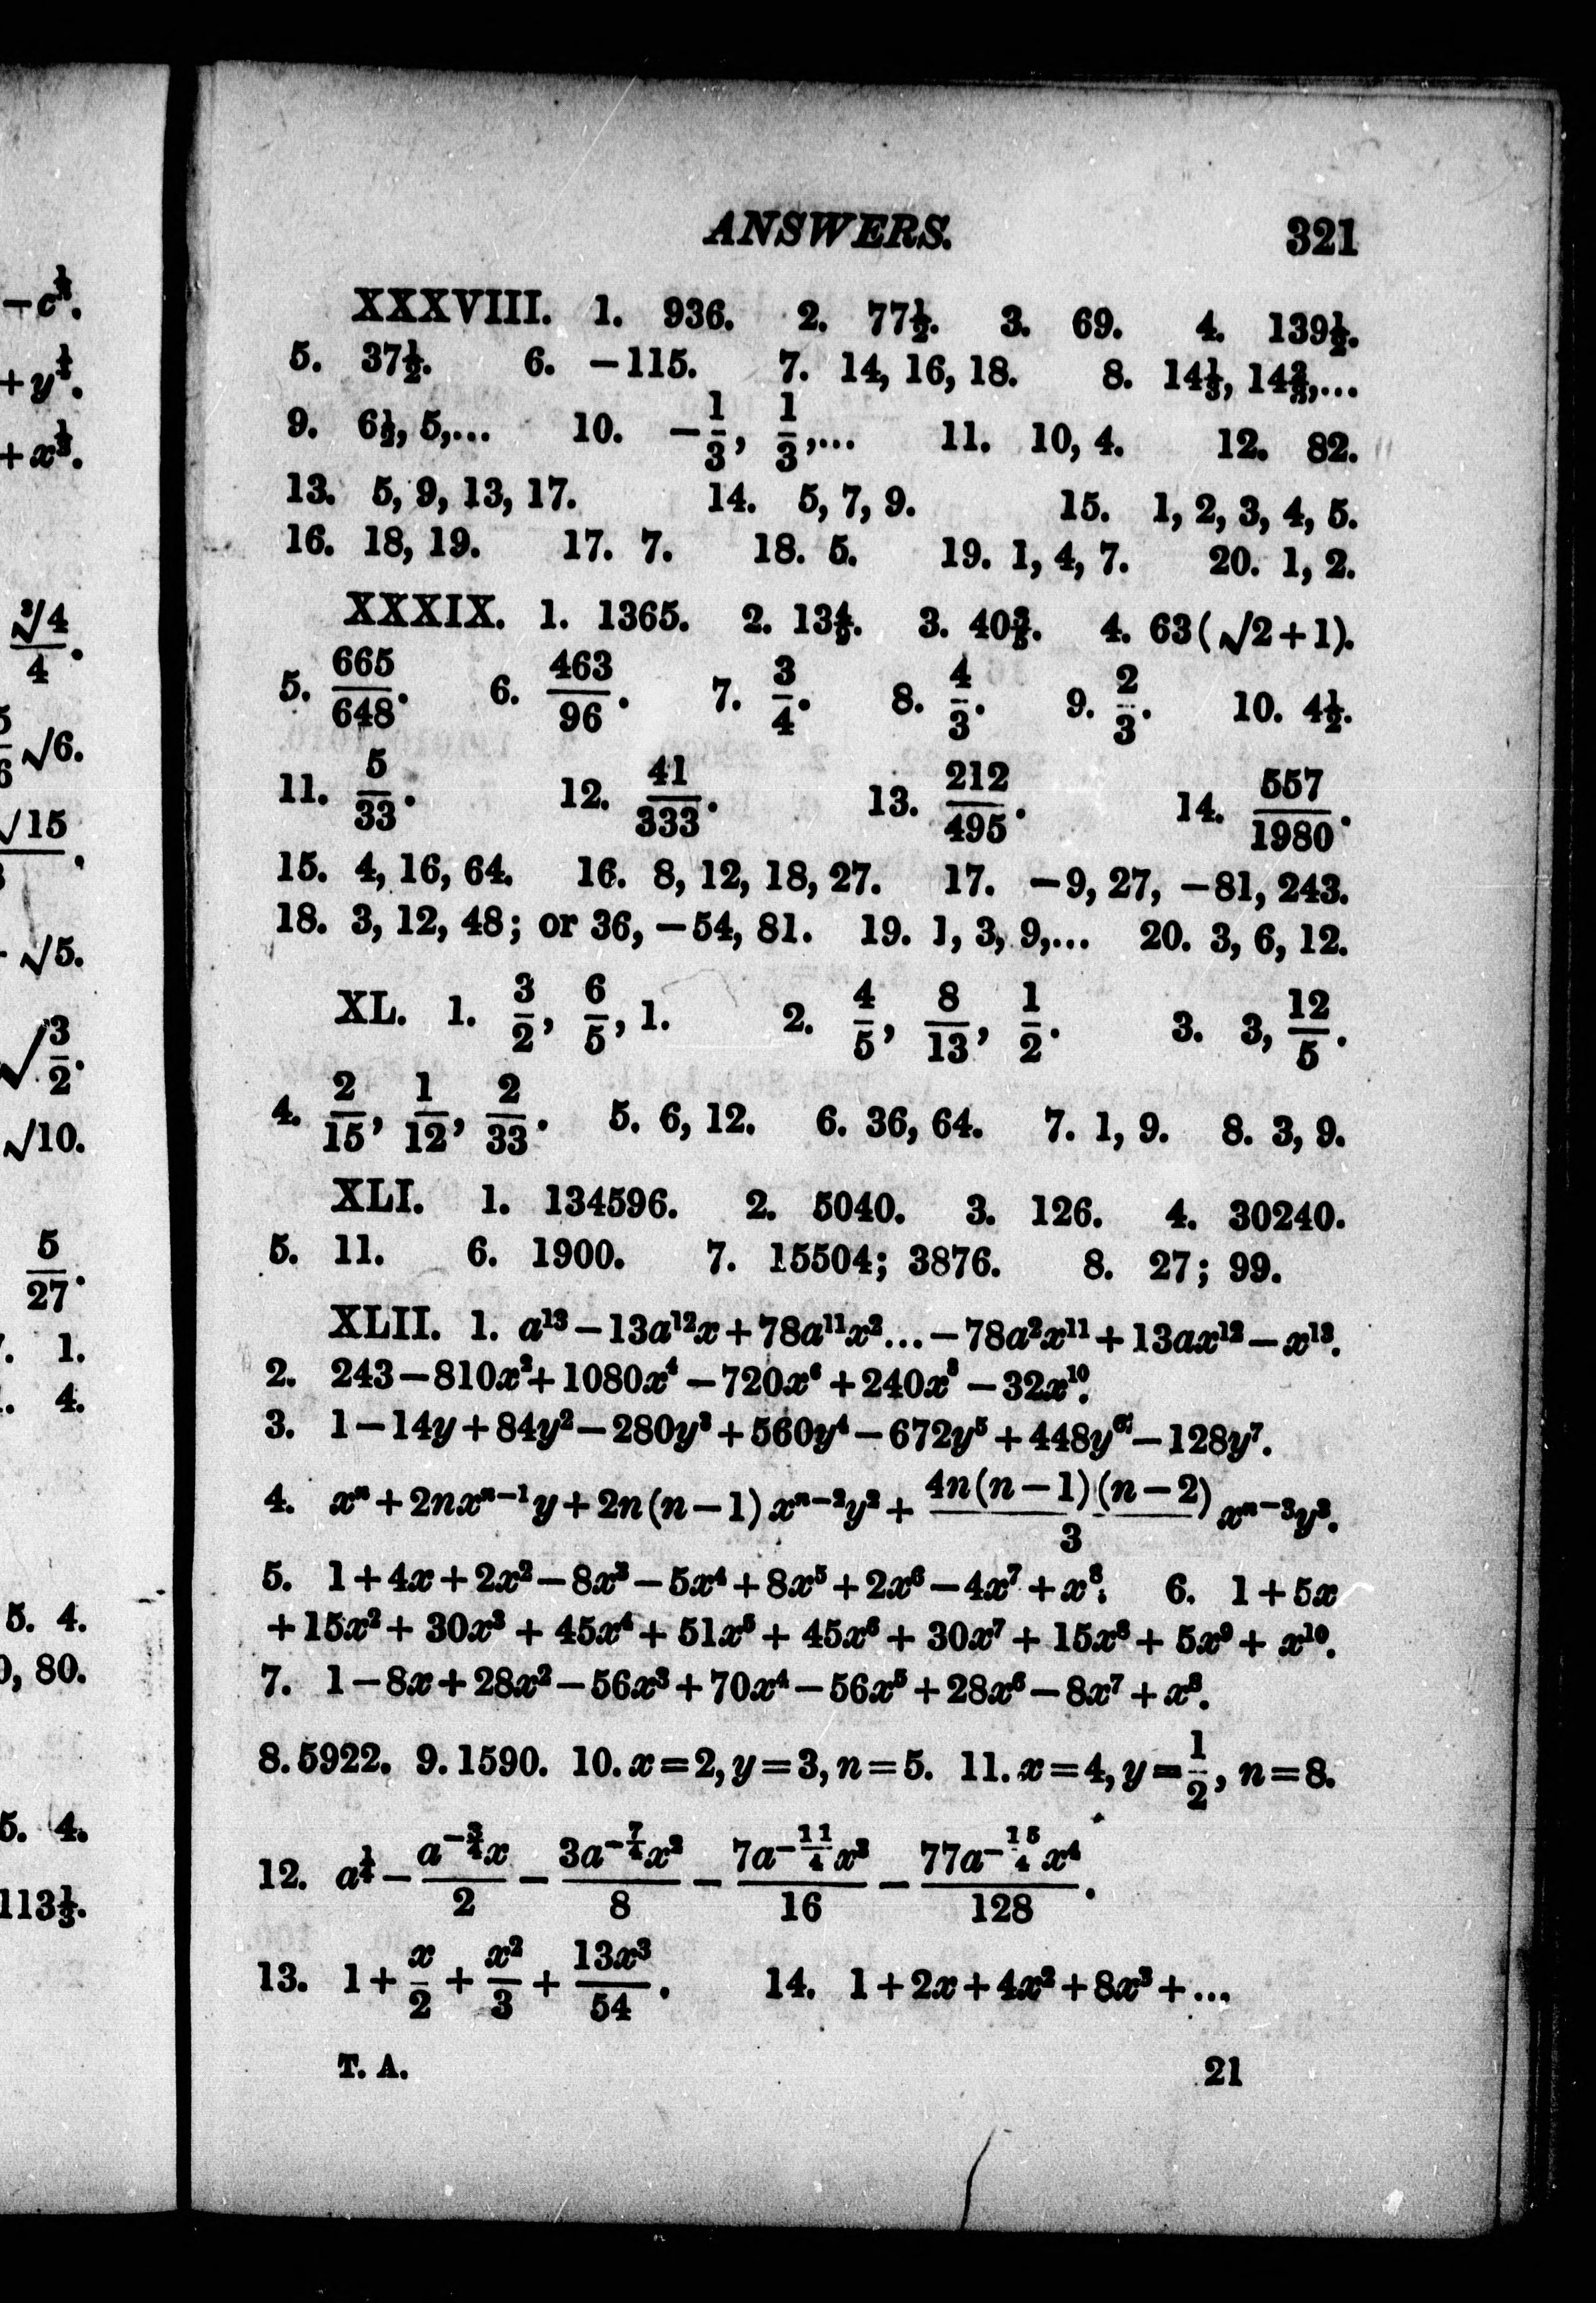 ANSWERS. 321
XXXVIII. 1. 936. 2. 77½. 3. 69. 4. 139½.
5. 37½. 6. −115. 7. 14, 16, 18. 8. 14⅓, 14⅔,...
9. 6½, 5,... 10. −1/3, 1/3,... 11. 10, 4. 12. 82.
13. 5, 9, 13, 17. 14. 5, 7, 9. 15. 1, 2, 3, 4, 5.
16. 18, 19. 17. 7. 18. 5. 19. 1, 4, 7. 20. 1, 2.
XXXIX. 1. 1365. 2. 13⅘. 3. 40⅖. 4. 63(√2+1).
5. 665/648. 6. 463/96. 7. 3/4. 8. 4/3. 9. 2/3. 10. 4½.
11. 5/33. 12. 41/333. 13. 212/495. 14. 557/1980.
15. 4, 16, 64. 16. 8, 12, 18, 27. 17. −9, 27, −81, 243.
18. 3, 12, 48; or 36, −54, 81. 19. 1, 3, 9,... 20. 3, 6, 12.
XL. 1. 3/2, 6/5, 1. 2. 4/5, 8/13, 1/2. 3. 3, 12/5.
4. 2/15, 1/12, 2/33. 5. 6, 12. 6. 36, 64. 7. 1, 9. 8. 3, 9.
XLI. 1. 134596. 2. 5040. 3. 126. 4. 30240.
5. 11. 6. 1900. 7. 15504; 3876. 8. 27; 99.
XLII. 1. a¹³−13a¹²x+78a¹¹x²...−78a²x¹¹+13ax¹²−x¹³.
2. 243−810x²+1080x⁴−720x⁶+240x⁸−32x¹⁰.
3. 1−14y+84y²−280y³+560y⁴−672y⁵+448y⁶−128y⁷.
4. xⁿ+2nxⁿ⁻¹y+2n(n−1)xⁿ⁻²y²+4n(n−1)(n−2)/3 xⁿ⁻³y³.
5. 1+4x+2x²−8x³−5x⁴+8x⁵+2x⁶−4x⁷+x⁸. 6. 1+5x
+15x²+30x³+45x⁴+51x⁵+45x⁶+30x⁷+15x⁸+5x⁹+x¹⁰.
7. 1−8x+28x²−56x³+70x⁴−56x⁵+28x⁶−8x⁷+x⁸.
8. 5922. 9. 1590. 10. x=2, y=3, n=5. 11. x=4, y=1/2, n=8.
12. a^(1/4) − a^(−3/4)x/2 − 3a^(−7/4)x²/8 − 7a^(−11/4)x³/16 − 77a^(−15/4)x⁴/128.
13. 1+x/2+x²/3+13x³/54. 14. 1+2x+4x²+8x³+...
T. A. 21